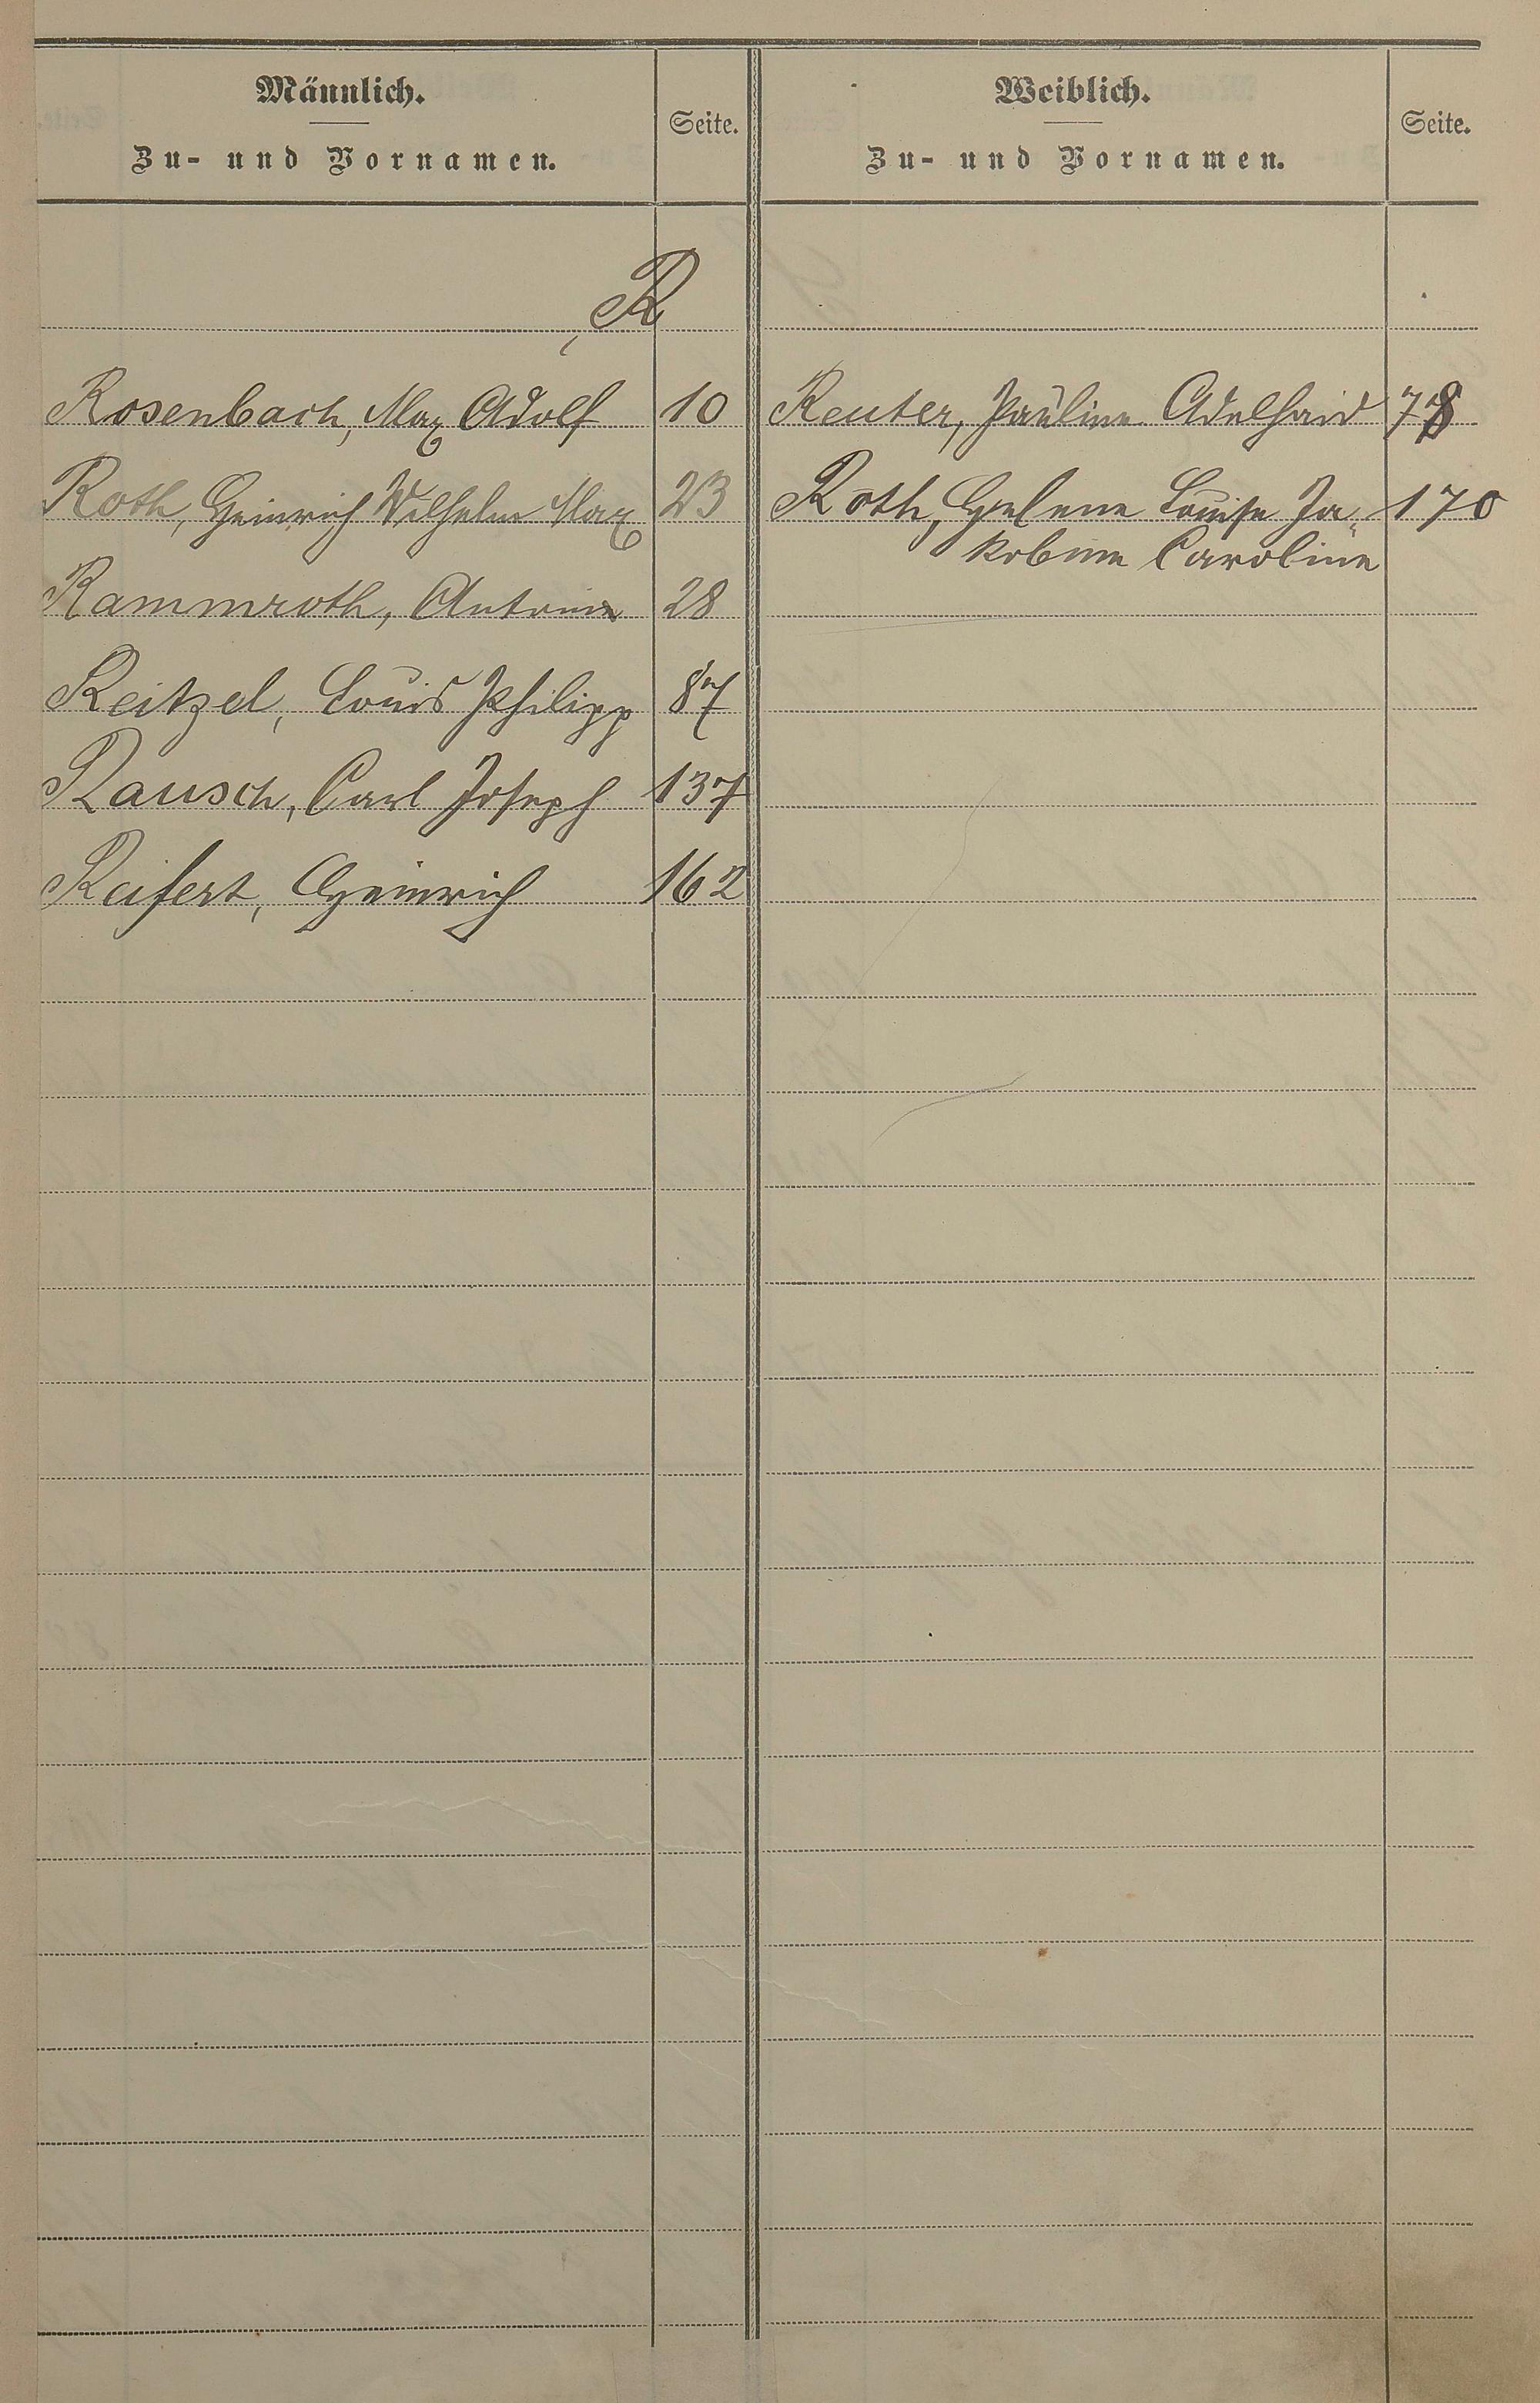 Männlich.
Zu- und Vornamen.
Seite.
Weiblich.
Zu- und Vornamen.
Seite.
R
Rosenbach, Max Adolf 10
Roth, Heinrich Wilhelm Max 23
Rammroth, 28
Reitzel, Louis Philipp 87
Rausch, Carl Joseph 137
Reifert, Heinrich 162
Reuter, Pauline Adelhaid 78
Roth, Helene Louise Ja- 170
kobine Caroline